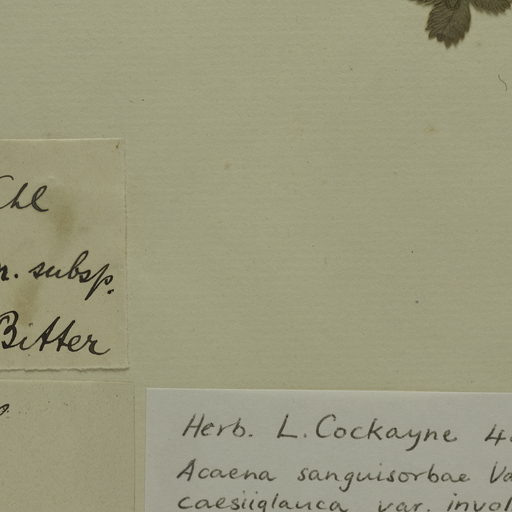 Chl
n. subsp.
Bitter
Herb. L. Cockayne 4
Acaena sanguisorbae Va
caesiiglauca var. invol